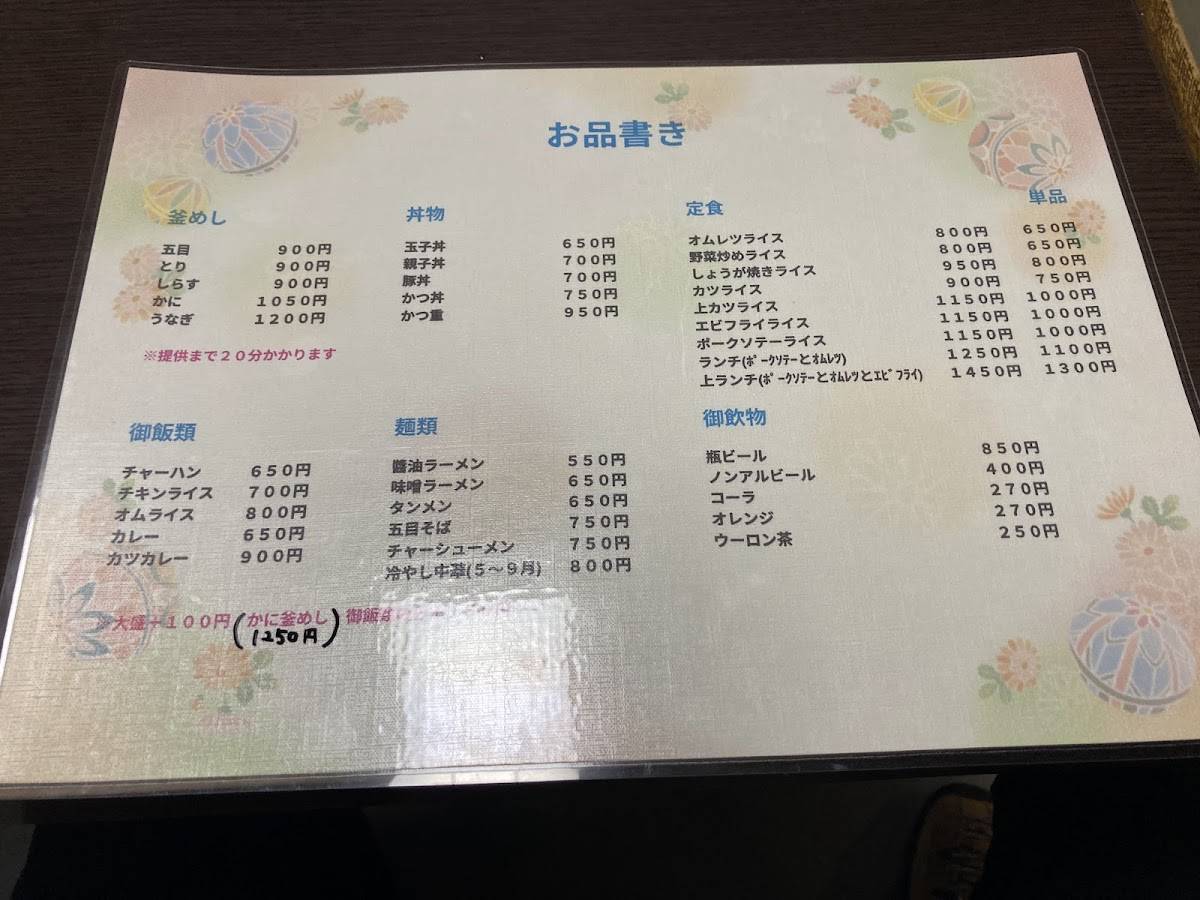 お品書き
釜めし
五目 900円
とり 900円
しらす 900円
かに 1050円
うなぎ 1200円
※提供まで20分かかります
丼物
玉子丼 650円
親子丼 700円
豚丼 700円
かつ丼 750円
かつ重 950円
定食 単品
オムレツライス 800円 650円
野菜炒めライス 800円 650円
しょうが焼きライス 950円 800円
カツライス 900円 750円
上カツライス 1150円 1000円
エビフライライス 1150円 1000円
ポークソテーライス 1150円 1000円
ランチ(ﾎﾟｰｸｿﾃｰとｵﾑﾚﾂ) 1250円 1100円
上ランチ(ﾎﾟｰｸｿﾃｰとｵﾑﾚﾂとｴﾋﾞﾌﾗｲ) 1450円 1300円
御飯類
チャーハン 650円
チキンライス 700円
オムライス 800円
カレー 650円
カツカレー 900円
麺類
醬油ラーメン 550円
味噌ラーメン 650円
タンメン 650円
五目そば 750円
チャーシューメン 750円
冷やし中華(5～9月) 800円
御飲物
瓶ビール 850円
ノンアルビール 400円
コーラ 270円
オレンジ 270円
ウーロン茶 250円
大盛＋100円(かに釜めし 1250円) 御飯